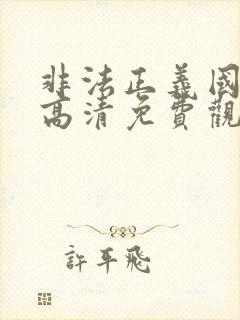 非法正義國
高清免費觀
許平飛